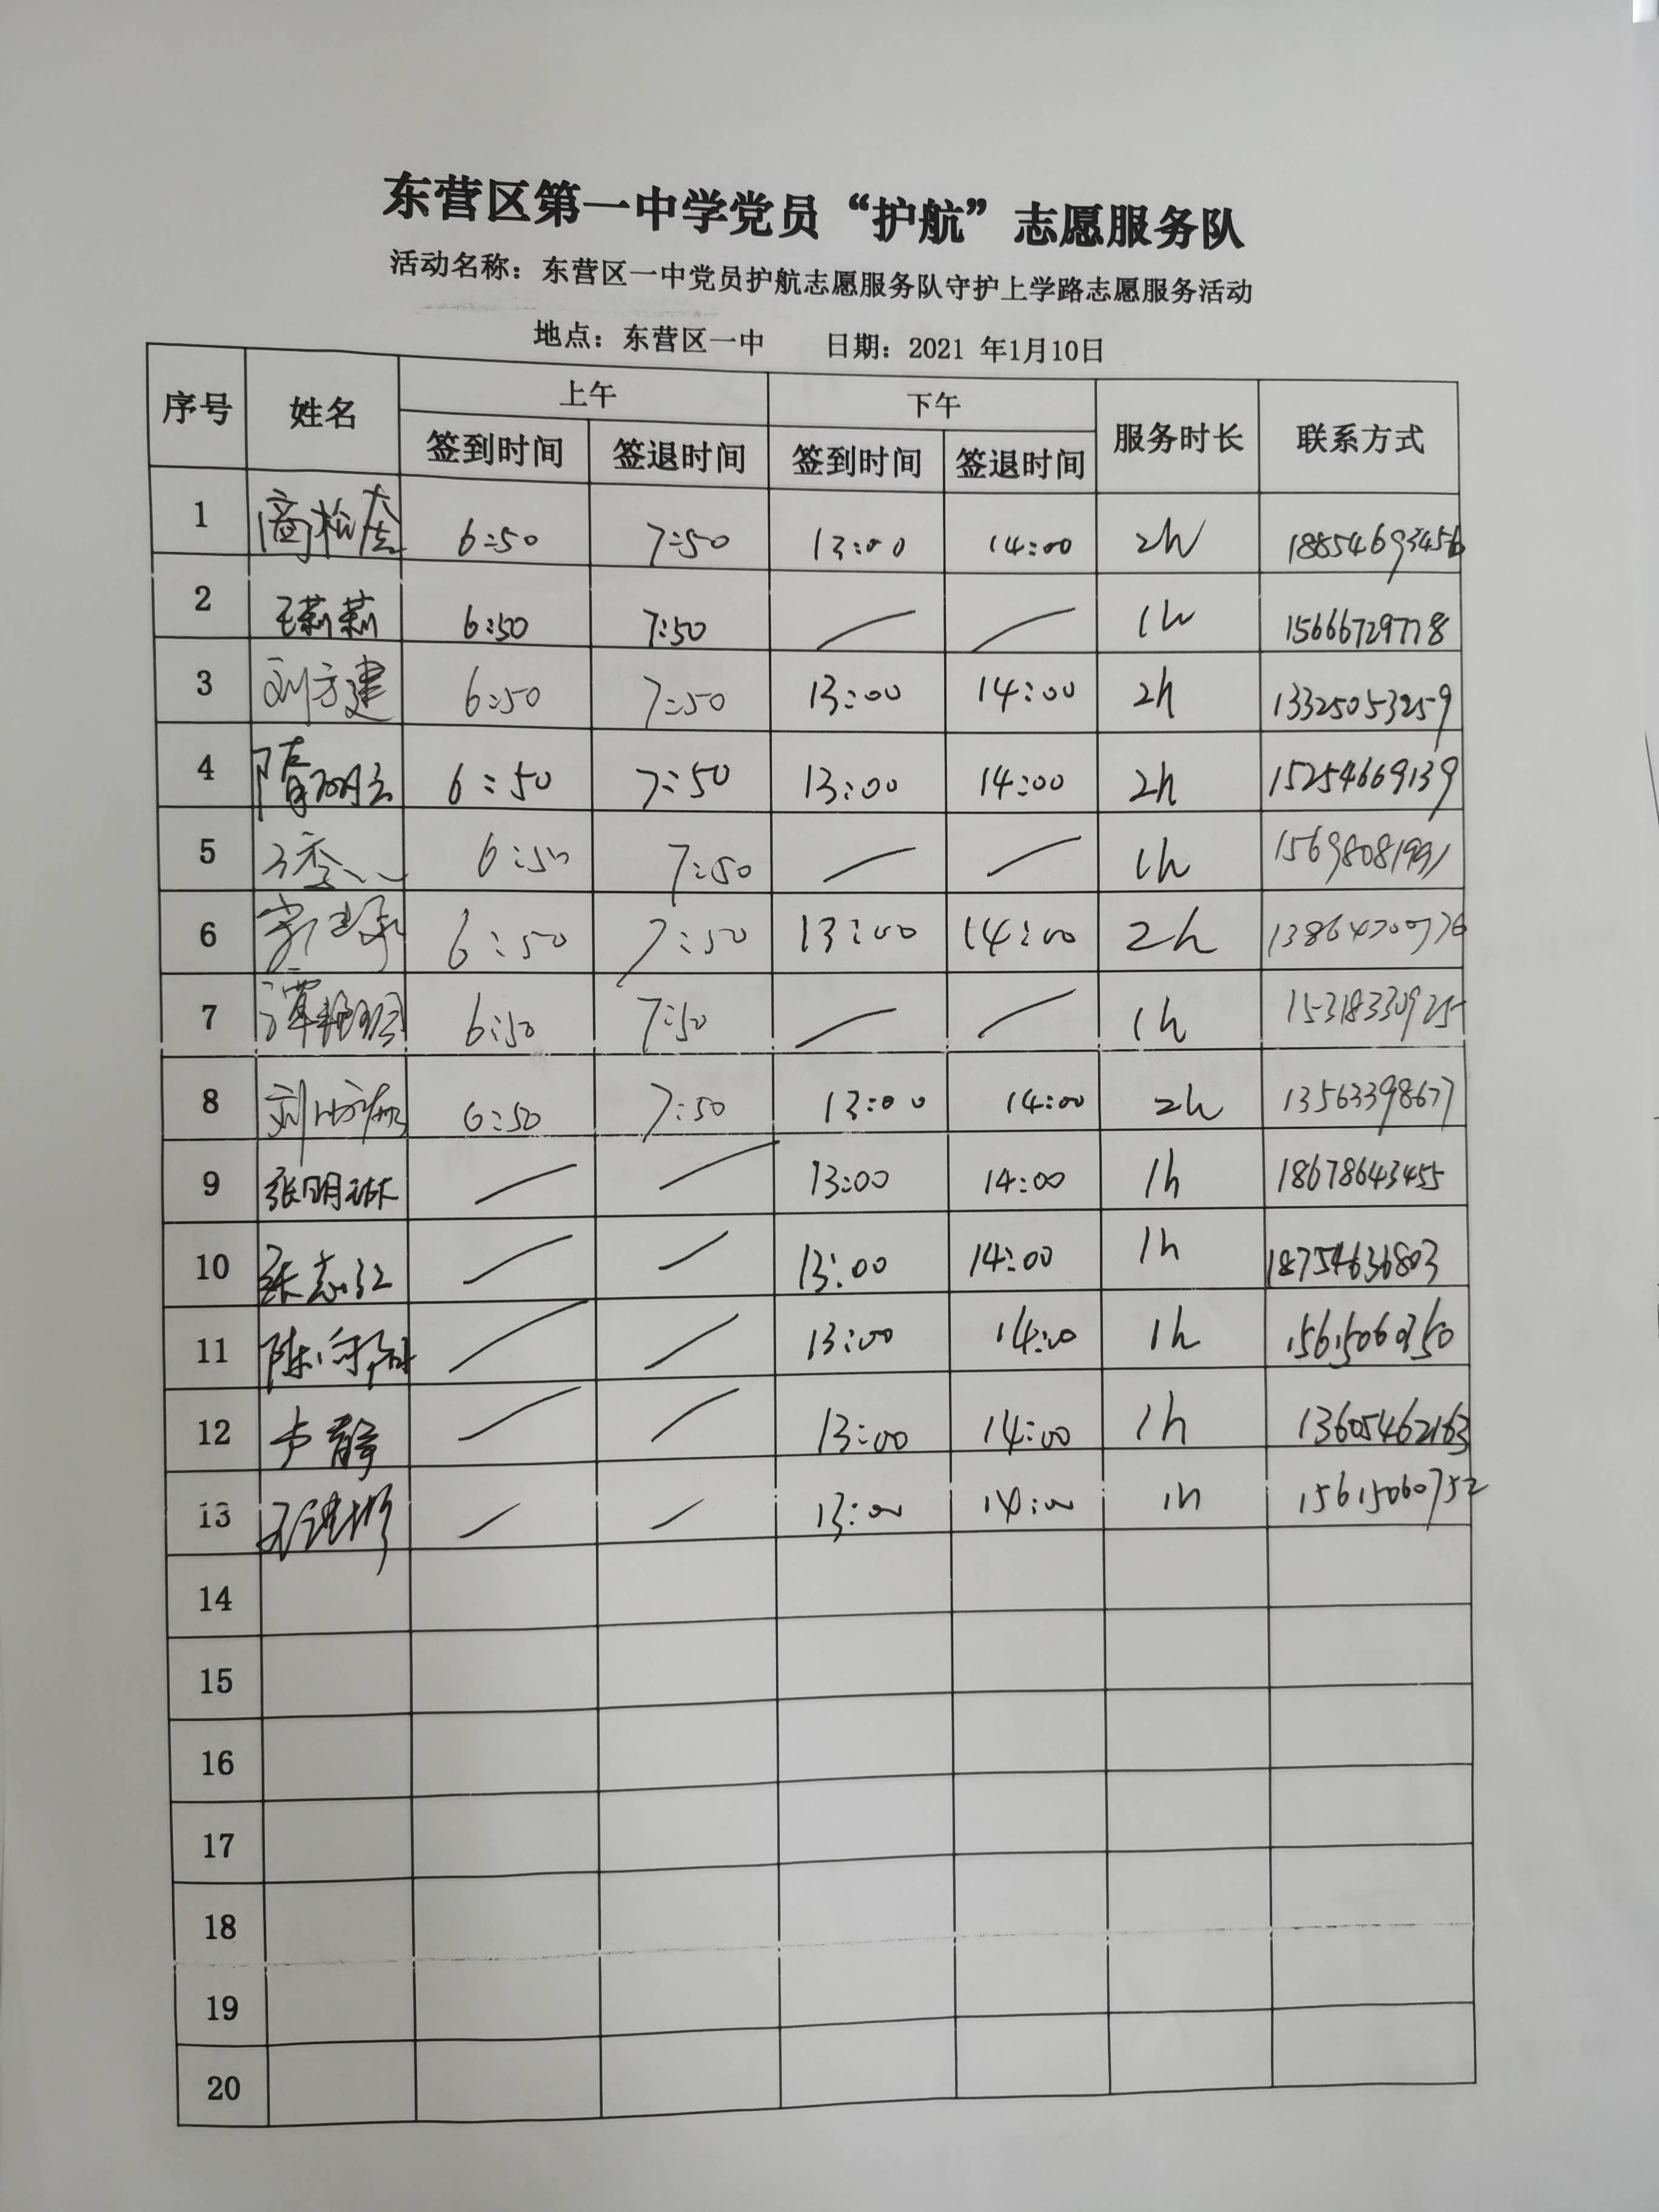 东营区第一中学党员“护航”志愿服务队
活动名称：东营区一中党员护航志愿服务队守护上学路志愿服务活动
地点：东营区一中 日期：2021 年1月10日
序号 姓名 上午 下午 服务时长 联系方式
签到时间 签退时间 签到时间 签退时间
1 商松 6:50 7:50 13:00 14:00 2h 18854693456
2 王莉莉 6:50 7:50 1h 15666729778
3 刘方建 6:50 7:50 13:00 14:00 2h 13325053259
4 隋 6:50 7:50 13:00 14:00 2h 15254669139
5 6:50 7:50 1h 15698081991
6 6:50 7:50 13:00 14:00 2h
7 6:50 7:50 1h 15318330925
8 刘 6:50 7:50 13:00 14:00 2h 13563398677
9 张明琳 13:00 14:00 1h 18678643455
10 张志江 13:00 14:00 1h 18754636803
11 陈 13:00 14:00 1h
12 卢静 13:00 14:00 1h 13605462163
13 13:00 14:00 1h 15615060752
14
15
16
17
18
19
20